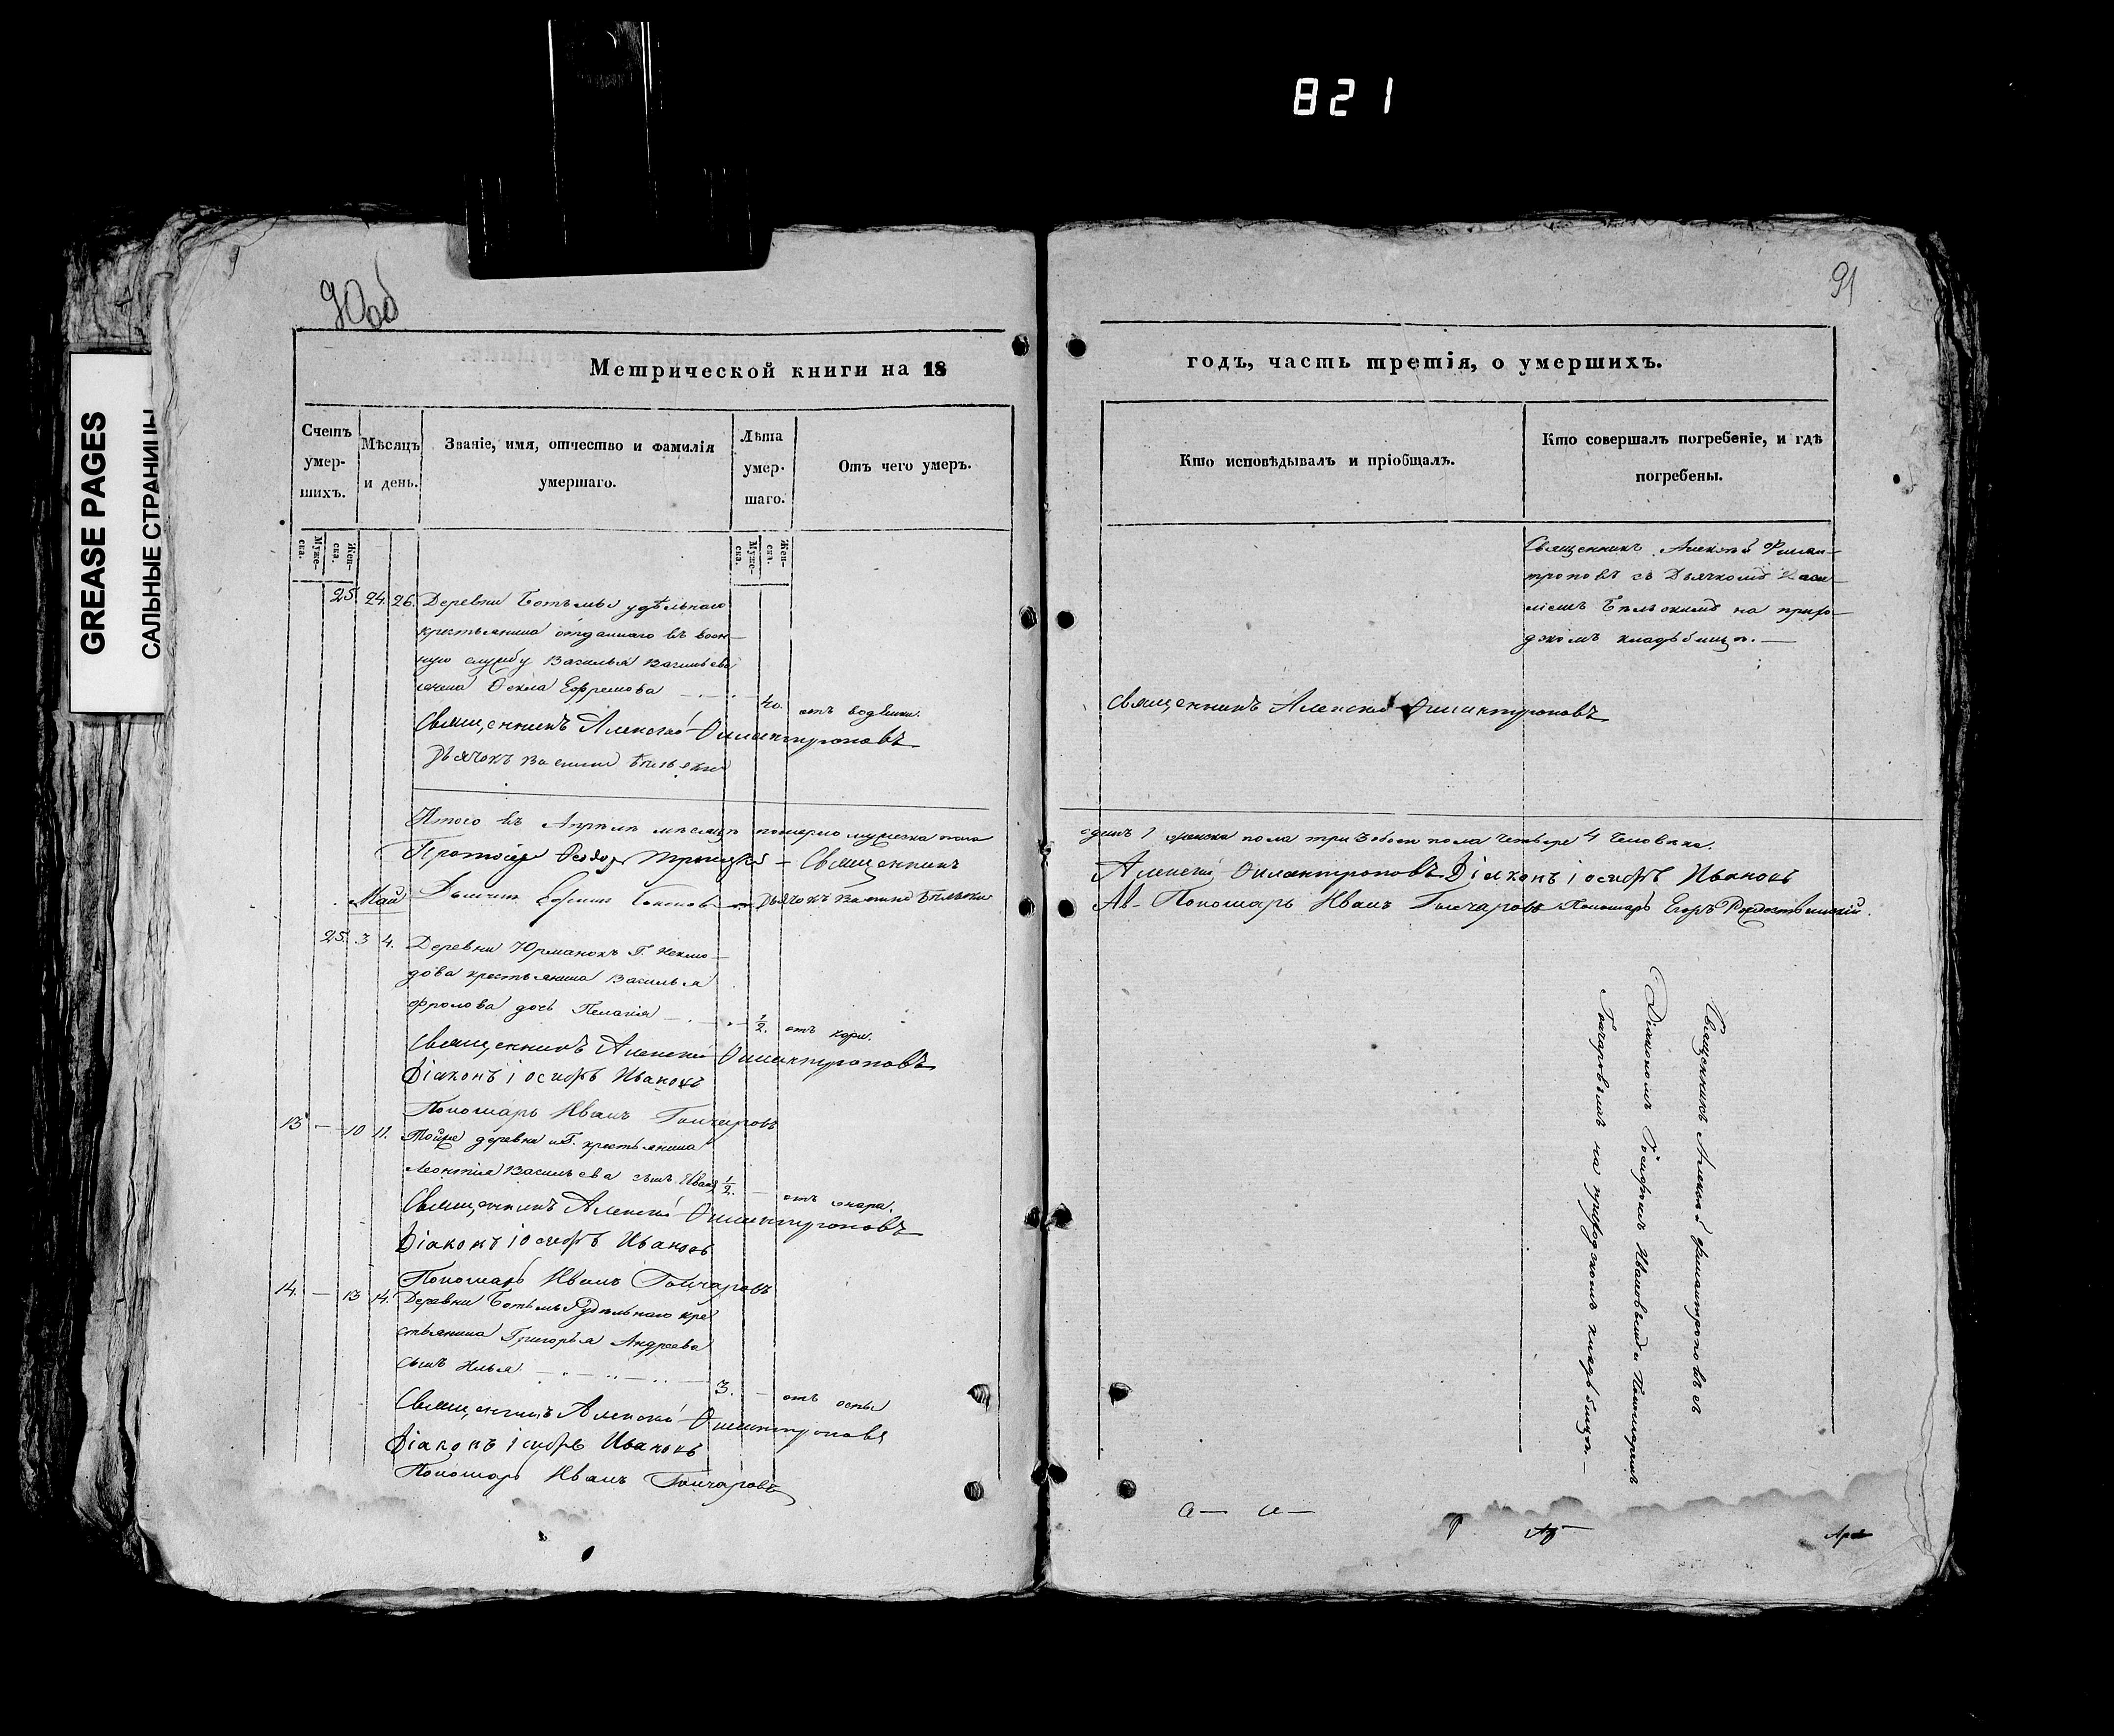 821
GREASE PAGES
САЛЬНЫЕ СТРАНИЦЫ
90об
Метрической книги на 18
Счетъ умер-шихъ.
Мѣсяцъ и день.
Званіе, имя, отчество и фамилія умершаго.
Лѣта умер-шаго.
Отъ чего умеръ.
Муже-ска.
Жен-ска.
Муже-ска.
Жен-ска.
25. 24. 26. Деревни Ботьмы удѣльнаго
крестьянина отданнаго въ воен-
ную службу Василья Васильева
жена Ѳекла Ефремова 40. отъ водянки.
Священникъ Алексѣй Филантроповъ
Дьячокъ Василій
Итого въ Апрѣлѣ мѣсяцѣ померло мужеска пола
Протоіерей Ѳеодоръ Троицкій - Священникъ
Дьячокъ Василій
Май
25. 3 4. Деревни Юрманокъ Г. Неклю-
дова крестьянина Василья
Фролова дочь Пелагія 1/2. отъ кори.
Священникъ Алексѣй Филантроповъ
Діаконъ Іосифъ Ивановъ
Пономарь Иванъ Гончаровъ
13 — 10 11. Тойже деревни и Г. крестьянина
Леонтія Васильева сынъ Иванъ 1/2. —
Священникъ Алексѣй Филантроповъ
Діаконъ Іосифъ Ивановъ
Пономарь Иванъ Гончаровъ
14. — 13 14. Деревни Ботьмы удѣльнаго кре-
стьянина Григорья Андреева
сынъ Илья 3. — отъ оспы
Священникъ Алексѣй Филантроповъ
Діаконъ Іосифъ Ивановъ
Пономарь Иванъ Гончаровъ
91
годъ, часть третія, о умершихъ.
Кто исповѣдывалъ и пріобщалъ.
Кто совершалъ погребеніе, и гдѣ погребены.
Священникъ Алексѣй Филан-
троповъ съ Дьячкомъ Васи-
ліемъ на прихо-
дскомъ кладбищѣ. —
Священникъ Алексѣй Филантроповъ
одинъ 1 женска пола три 3 обоего пола четыре 4 человѣка.
Алексѣй Филантроповъ Діаконъ Іосифъ Ивановъ
Пономарь Иванъ Гончаровъ Пономарь Егоръ Рождественскій.
Священникъ Алексѣй Филантроповъ съ
Діакономъ Іосифомъ Ивановымъ и Пономаремъ
Гончаровымъ на приходскомъ кладбищѣ. —